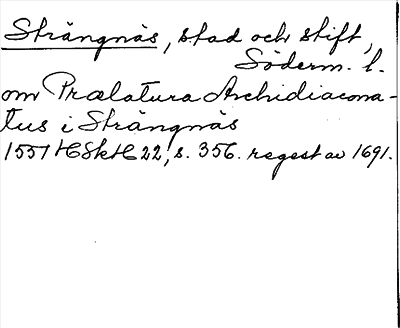 Strängnäs, stad och stift,
Söderm. l.
om Prælatura Archidiacona-
tus i Strängnäs
1551 HSkH 22, s. 356. regest av 1691.